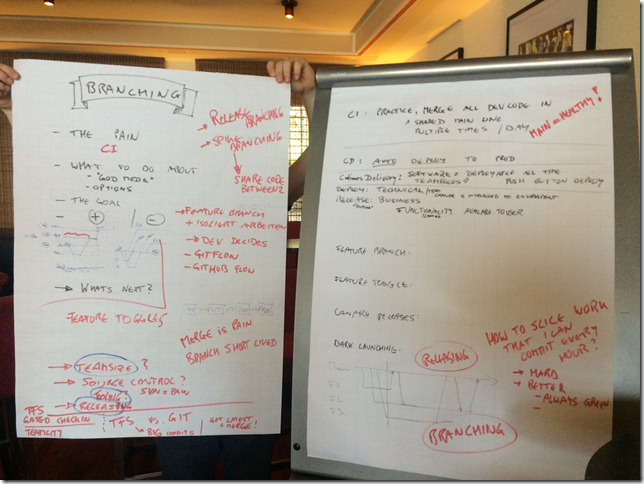 BRANCHING
- THE PAIN
CI
- WHAT TO DO ABOUT
- "GOD MODE"
- OPTIONS
- THE GOAL
- + / -
→ WHATS NEXT?
FEATURE TOGGLES
→ TEAMSIZE ?
→ SOURCE CONTROL ?
SVN = PAIN
→ RELEASING
TFS
GATED CHECKIN
TEAMCITY
TFS vs. GIT
BIG COMMITS
GET LATEST
+ MERGE!
→ RELEASE BRANCHING
→ SPIKE BRANCHING
→ SHARE CODE
BETWEEN 2
→ FEATURE BRANCH
+ ISOLIERT ARBEITEN
→ DEV DECIDES
- GITFLOW
- GITHUB FLOW
MERGE IS PAIN
BRANCH SHORT LIVED
CI : PRACTICE, MERGE ALL DEV CODE IN
A SHARED MAIN LINE
MULTIPLE TIMES / DAY
MAIN = HEALTHY!
CD : AUTO DEPLOY TO PROD
SOFTWARE = DEPLOYABLE ALL THE
PUSH BUTTON DEPLOY
DEPLOY: TECHNICAL
RELEASE: BUSINESS
FUNCTIONALITY AVAILABLE TO USER
FEATURE BRANCH:
FEATURE TOGGLE:
CANARY RELEASES:
DARK LAUNCHING:
RELEASING
BRANCHING
HOW TO SLICE WORK
THAT I CAN
COMMIT EVERY
HOUR?
→ HARD
→ BETTER
- ALWAYS GREEN